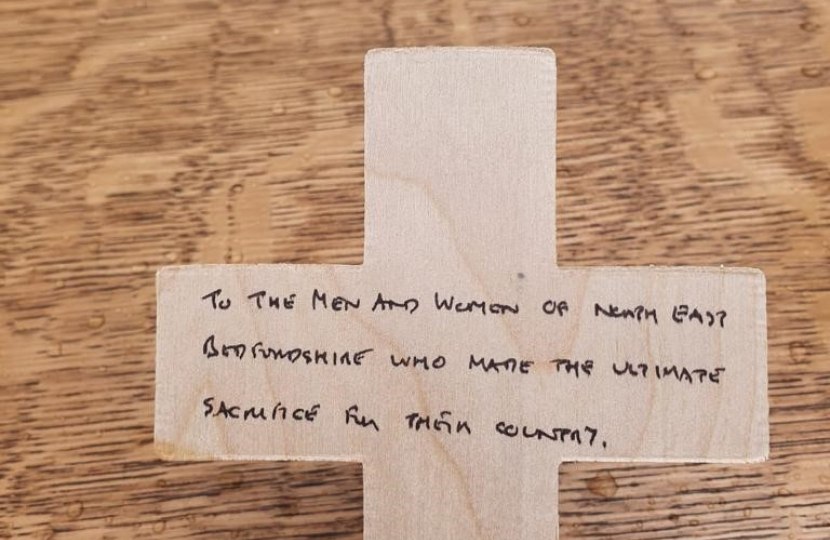 To THE MEN AND WOMEN OF NORTH EAST
BEDFORDSHIRE WHO MADE THE ULTIMATE
SACRIFICE FOR THEIR COUNTRY.